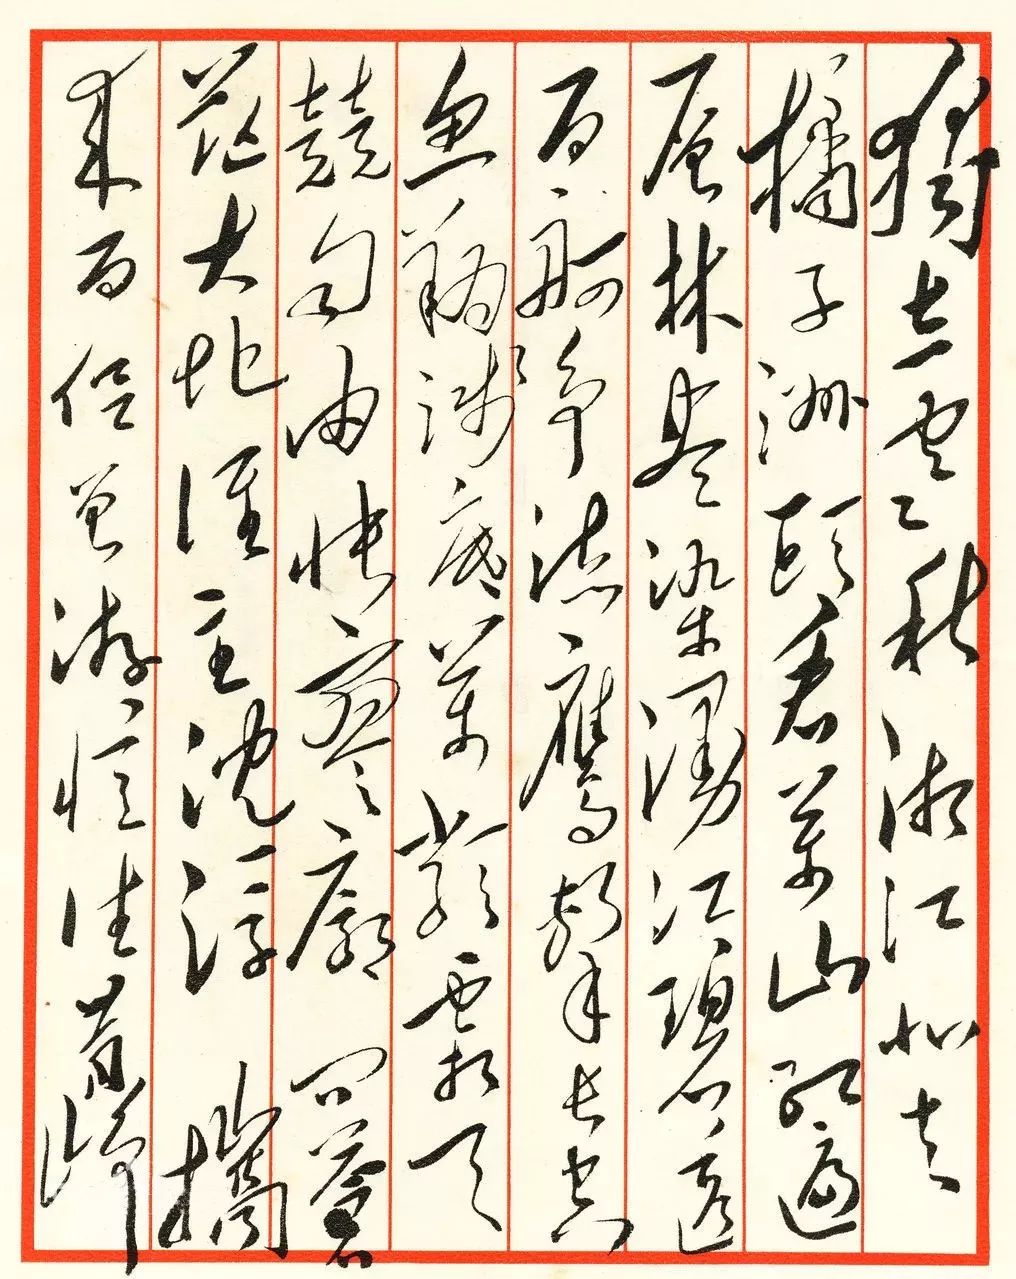 獨立寒秋湘江北去
橘子洲頭看萬山紅遍
層林盡染漫江碧透
百舸爭流鷹擊長空
魚翔淺底萬類霜天
競自由悵寥廓問蒼
茫大地誰主沉浮攜
來百侶曾游憶往昔崢